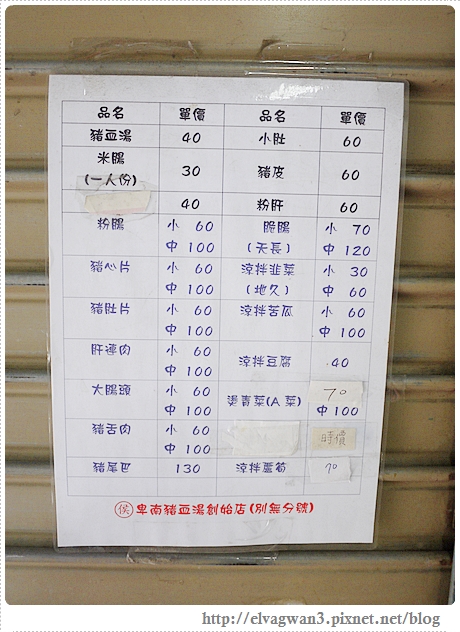 品名 單價 品名 單價
豬血湯 40 小肚 60
米腸
(一人份) 30 豬皮 60
40 粉肝 60
粉腸 小 60 脆腸 小 70
中 100 (天長) 中 120
豬心片 小 60 涼拌韭菜 小 30
中 100 (地久) 中 60
豬肚片 小 60 涼拌苦瓜 小 60
中 100 中 100
肝連肉 小 60 涼拌豆腐 40
中 100
大腸頭 小 60 燙青菜(A菜) 70
中 100 中 100
豬舌肉 小 60 時價
中 100
豬尾巴 130 涼拌蘆筍 70
侯 卑南豬血湯創始店(別無分號)
http://elvagwan3.pixnet.net/blog